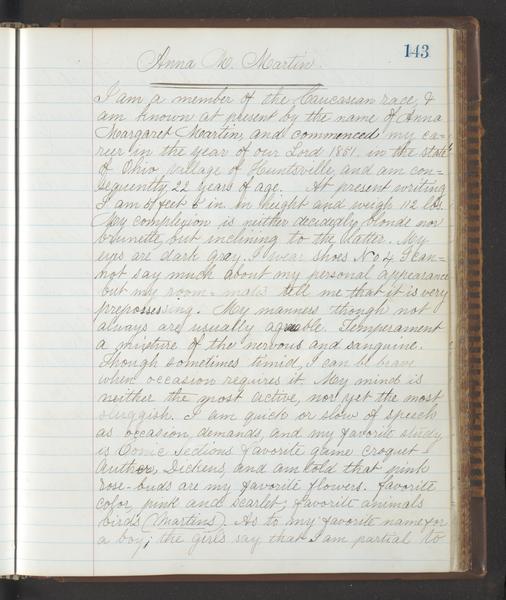 143
Anna M. Martin.
I am a member of the Caucasian race, &
am known at present by the name of Anna
Margaret Martin, and commenced my ca=
reer in the year of our Lord 1851. in the state
of Ohio village of Huntsville, and am con=
sequently 22 years of age. At present writing
I am 5 feet 5 in in height and weigh 112 lbs.
My complexion is neither decidedly blonde nor
brunette, but inclining to the latter. My
eyes are dark gray. I wear shoes No 4. I can=
not say much about my personal appearance
but my room-mates tell me that it is very
prepossessing. My manners though not
always are usually agreeable. Temperament
a mixture of the nervous and sanguine.
Though sometimes timid, I can be brave
when occasion requires it. My mind is
neither the most active, nor yet the most
sluggish. I am quick or slow of speech
as occasion demands, and my favorite study
is Conic Sections favorite game croquet
Author, Dickens, and am told that pink
rose-buds are my favorite flowers. favorite
color, pink and scarlet; favorite animals
birds (Martins). As to my favorite name for
a boy; the girls say that I am partial to